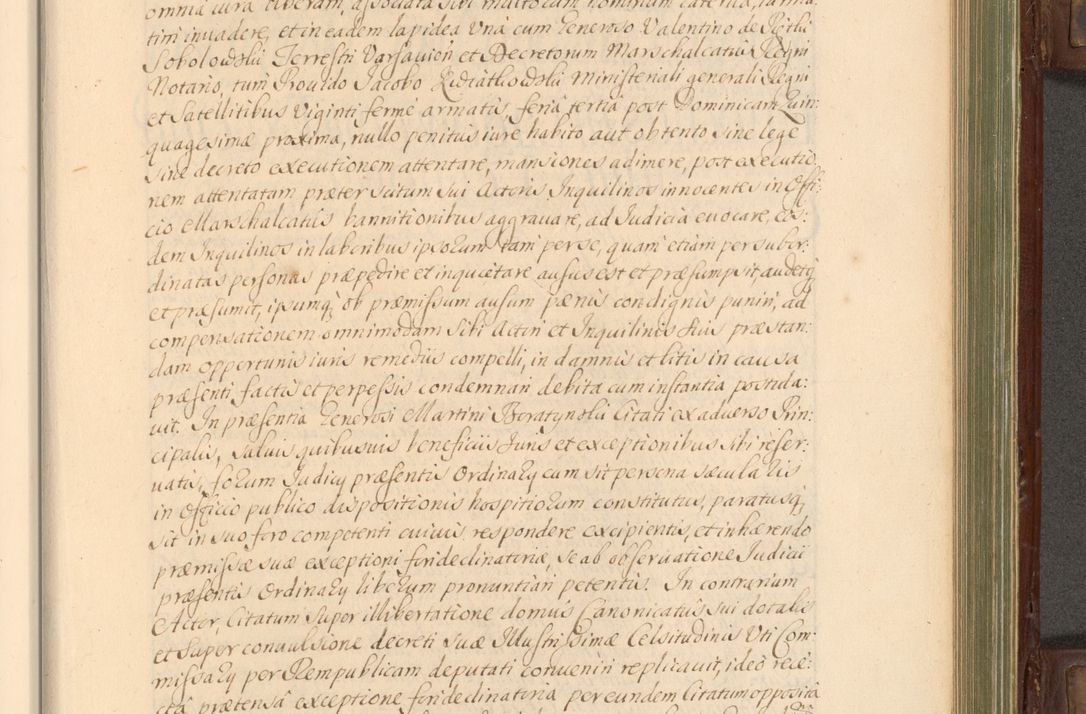 omnia iura liberam, associata sibi multorum hominum caterva, arma:
tim invadere, et in eadem lapidea Una cum Generoso Valentino de
Sobolowskii Terrestri Varsavien et Decretorum Marschalcatus Regni
Notario, tum Provido Jacobo Ministeriali generali Regni
et Satellitibus Viginti fermé armatis feria tertia post Dominicam Quin:
quagesimæ proxima, nullo penitus iure habito aut obtento sine lege
sine decreto executionem attentare, mansiones adimere, post executio
nem attentatam præter scitum sui Actoris Inquilinos innocentes in Offi:
cio Marschalcatus bannitionibus aggravare, ad Judicia evocare, eos:
dem Inquilinos in laboribus ipsorum tam per se, quam etiam per subor:
dinatas personas præpedire et inquietare ausus est et præsumpsit, audetq
et præsumit, ipsumq ob præmissum ausum pænis condignis puniri, ad
compensationem omnimodam sibi Actori et Inquilinis suis præstan:
dam opportunis iuris remediis compelli, in damnis et litis in causa
præsenti factis et perpessis condemnari debita cum instantia postula:
vit. In præsentia Generosi Martini Citati ex adverso Prin:
cipalis, salvis quibusvis beneficiis Juris et exceptionibus sibi reser:
vatis, forum Judicy præsentis Ordinary cum sit persona sæcularis
in Officio publico dispositionis hospitiorum constitutus, paratusq
sit in suo foro competenti cuivis respondere excipientis, et inhærendo
præmissæ suæ exceptioni fori declinatoriæ, se ab observatione Judicii
præsentis Ordinary liberum pronuntiari petentis. In contrarium
Actor, Citatum super illibertatione domus Canonicatus sui dotalis
et super convulsione decreti suæ Illustrissimæ Celsitudinis Uti Com:
missary per Rempublicam deputati conveniri replicavit, ideo reie:
cta prætensa exceptione fori declinatoria per eundem Citatum opposita